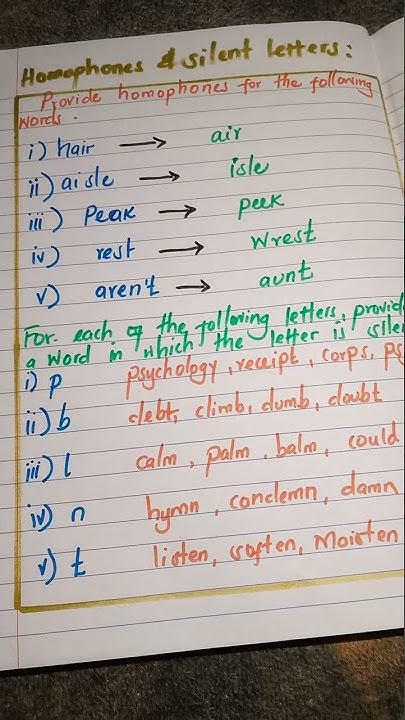 Homophones & silent letters:
Provide homophones for the following
words.
i) hair → air
ii) aisle → isle
iii) Peak → peek
iv) rest → Wrest
v) aren't → aunt
For each of the following letters, provide
a word in which the letter is silen
i) p psychology, receipt, corps, ps
ii) b debt, climb, dumb, doubt
iii) l calm, palm, balm, could
iv) n hymn, condemn, damn
v) t listen, soften, Moisten